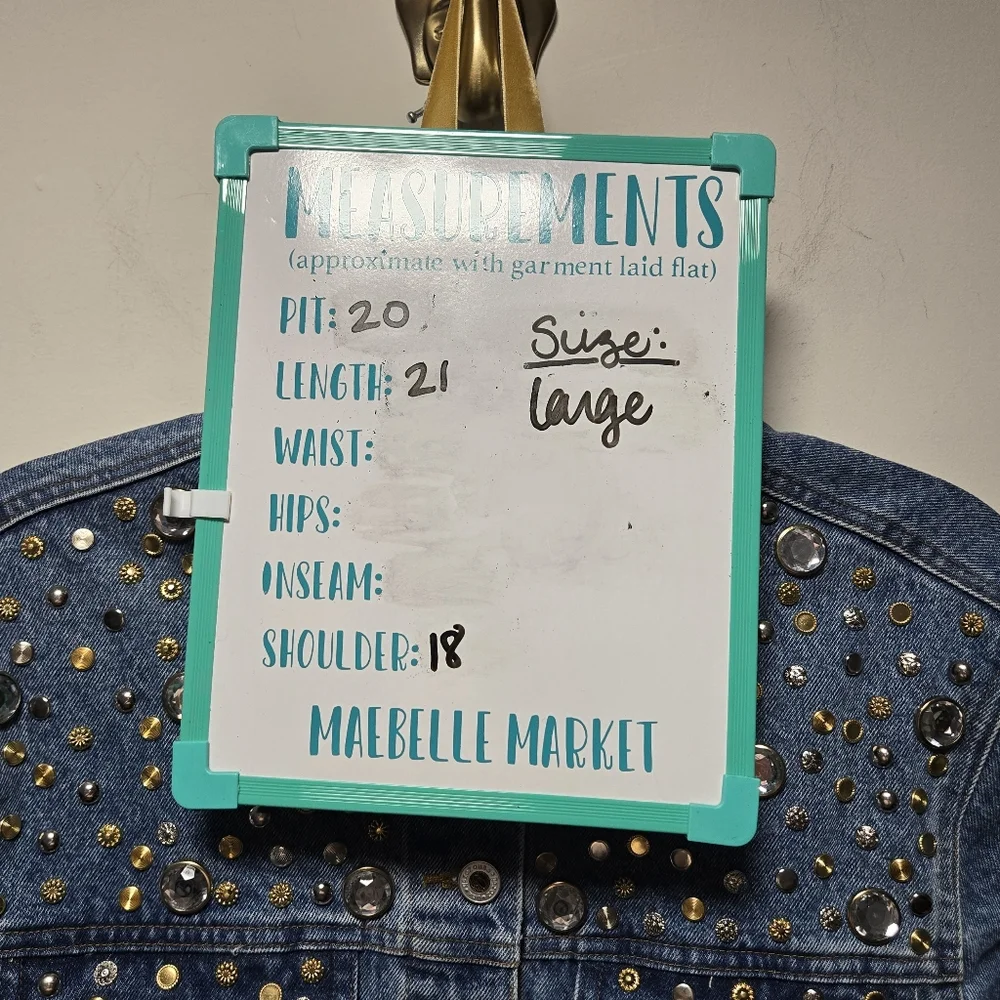 MEASUREMENTS
(approximate with garment laid flat)
PIT: 20
LENGTH: 21
WAIST:
HIPS:
INSEAM:
SHOULDER: 18
Size:
large
MAEBELLE MARKET